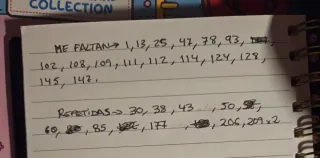 COLLECTION
ME FALTAN→ 1, 13, 25, 47, 78, 93,
102, 108, 109, 111, 112, 114, 124, 128,
145, 147.
REPETIDAS→ 30, 38, 43, 50,
60, 85, 177, 206, 209x2